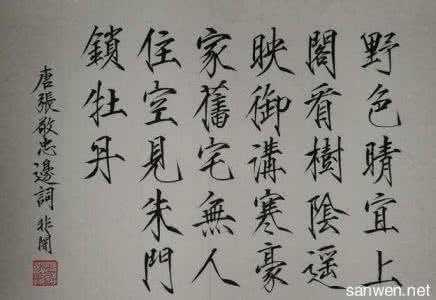 野色晴宜上
閣看樹陰遥
映御講寒豪
家舊宅無人
住空見朱門
鎖牡丹
唐張敬忠邊詞 非聞
sanwen.net